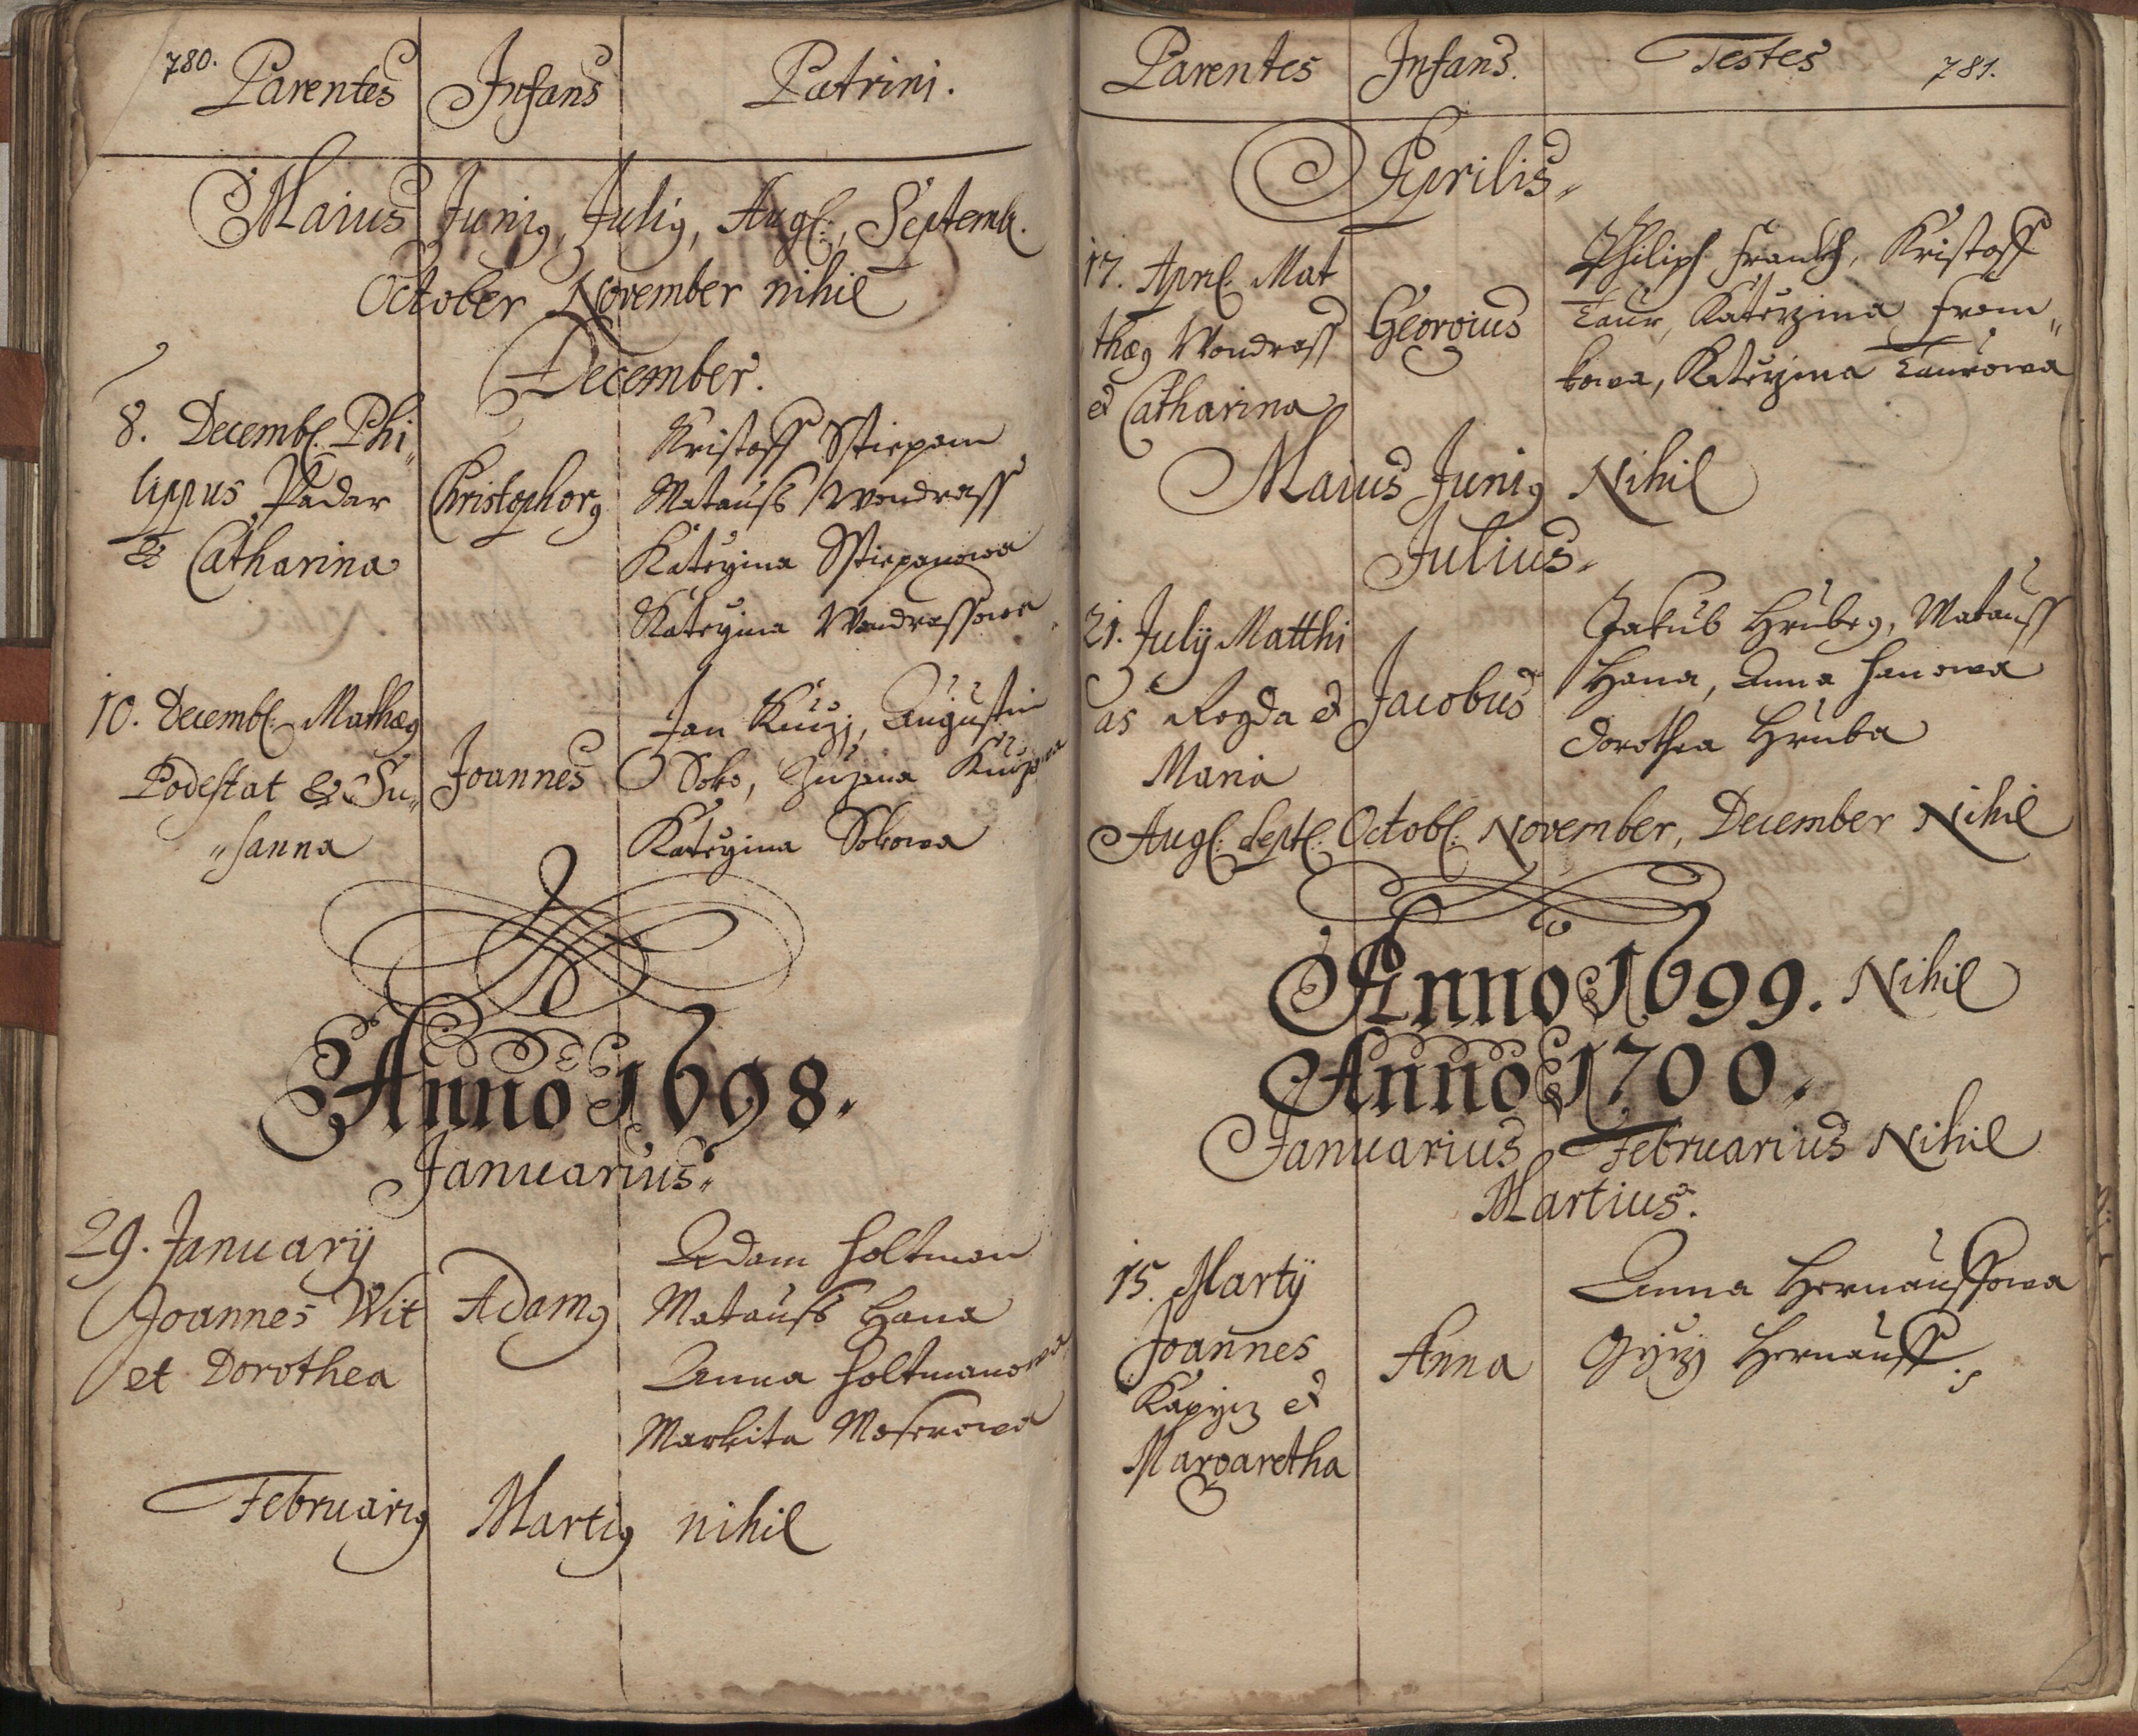 780.
Parentes Infans Patrini.
Maius Juni9, Juli9, Augl:, Septemb.
October November nihil
December.
8. Decembl. Phi„
lippus Padar
& Catharina
Christophor9
Kristoff Sstiepam
Matauss Wondrass
Kateyina Sstiepanowa
Kateyina Wondrassowa
10. Decembl. Mathæ9
Podestat & Su„
„sanna
Joannes
Jan, Augustin
Soko, Zuzana
Kateyina Sokowa
Anno 1698.
Januarius.
29. Januarÿ
Joannes Wit
et Dorothea
Adam9
Adam Holtman
Matauss Hana
Anna Holtmanowa
Markita Moserowa
Februari9 Marti9 nihil
Parentes Infans. Testes 781.
Aprilis
17. April. Mat
thæ9 Wondrass
et Catharina
Georgius
Philiph, Kristoff
Taur, Katerzina From„
kowa, Kateyina Taurowa
Maius Juni9 Nihil
Julius.
21. Julÿ Matthi
as Rogda et
Maria
Jacobus
Jakub Hrubey, Matauss
Hana, Anna Hanowa
Dorothea Hruba
Augl: Septl: Octobl: November, December Nihil
Anno 1699. Nihil
Anno 1700.
Januarius Februarius Nihil
Martius.
15. Martÿ
Joannes
et
Margaretha
Anna
Anna Hernaussowa
Hernauss